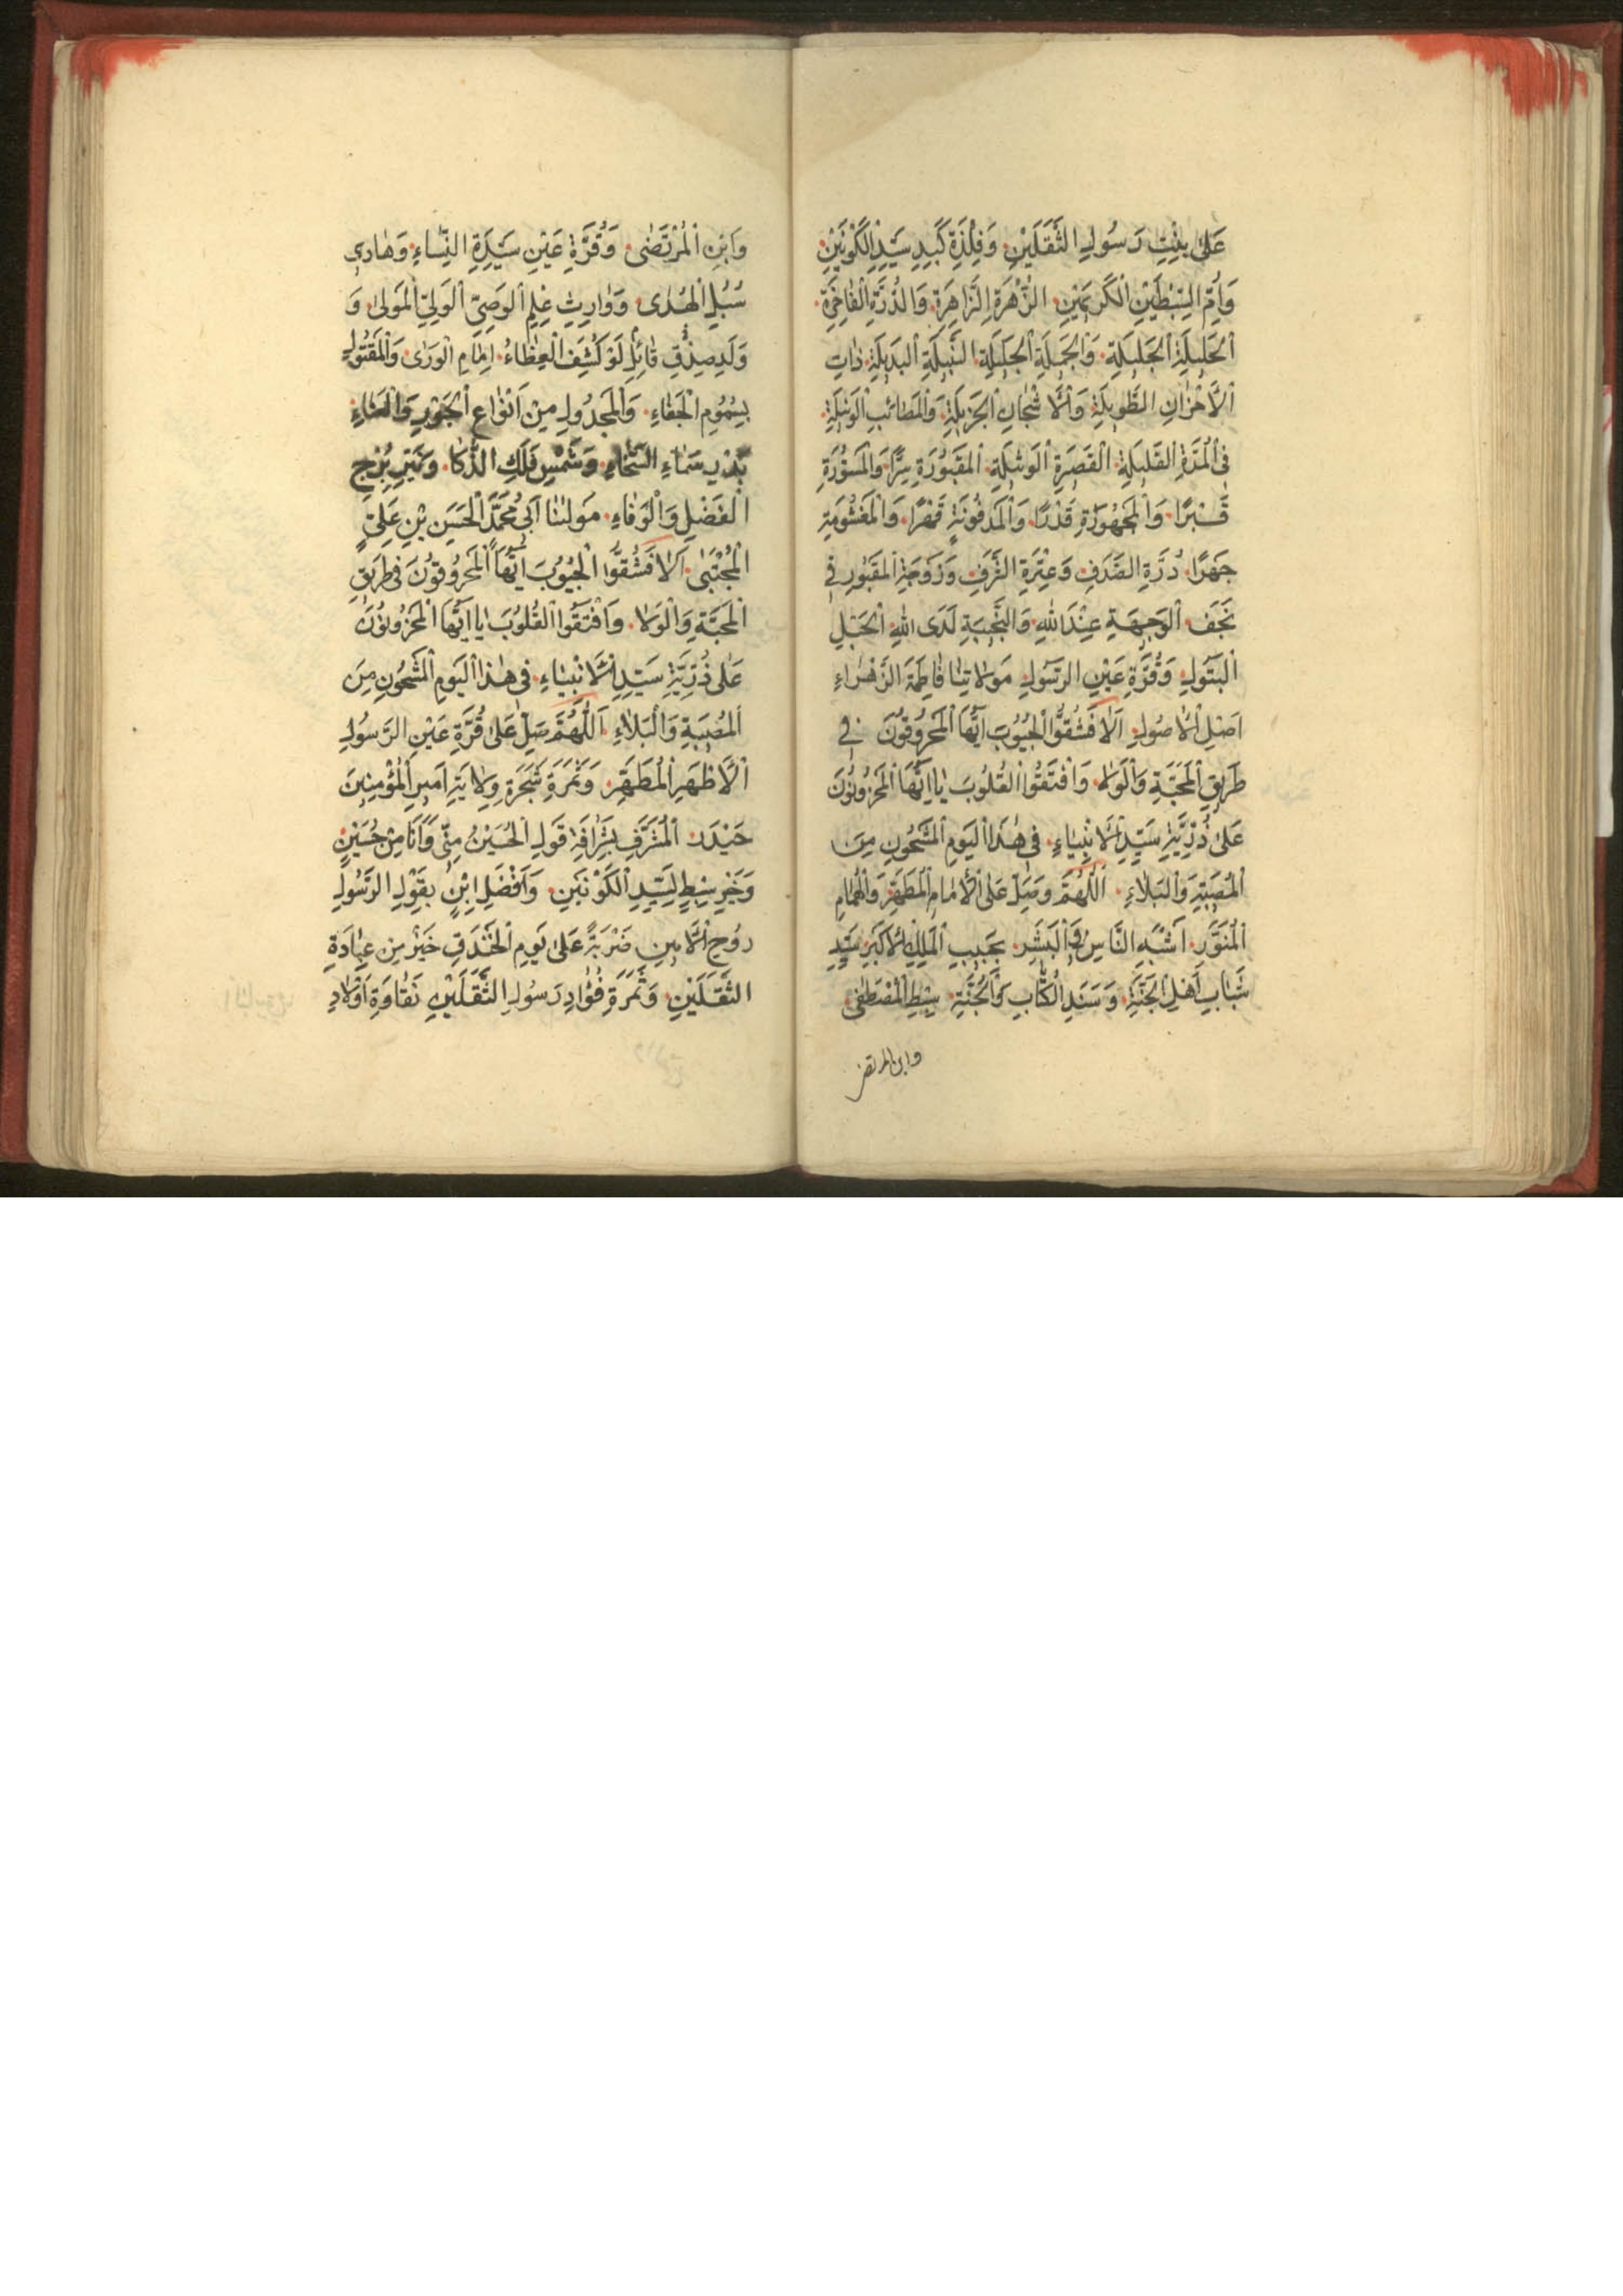 عَلىٰ بِنْتِ رَسُولِ الثَّقَلَيْنِ وَفِلْذَةِ كَبِدِ سَيِّدِ الْكَوْنَيْنِ
وَاُمِّ السِّبْطَيْنِ الْكَرِيمَيْنِ الزُّهْرَةِ الزَّاهِرَةِ وَالدُّرَّةِ الْفَاخِرَةِ
الْجَلِيلَةِ وَالْجَمِيلَةِ النَّبِيلَةِ الْبَدِيلَةِ ذَاتِ
الْاَحْزَانِ الطَّوِيلَةِ وَالْاَشْجَانِ الْجَزِيلَةِ وَالْمَصَائِبِ الْوَبِيلَةِ
فِى الْمُدَّةِ الْقَلِيلَةِ الْقَصِرَةِ الْمَقْبُورَةِ سِرًّا وَالْمَسْتُورَةِ
قَبْرًا وَالْمَجْهُورَةِ قَدْرًا وَالْمَدْفُونَةِ وَالْمَغْشُومَةِ
جَهْرًا دُرَّةِ الصَّدَفِ وَعِتْرَةِ الشَّرَفِ وَزَوْجَةِ الْمَقْبُورِ فِى
نَجَفَ الْوَجِيهَةِ عِنْدَ اللهِ وَالنَّجِيبَةِ لَدَى اللهِ
الْبَتُولِ وَقُرَّةِ عَيْنِ الرَّسُولِ مَوْلَاتِنَا فَاطِمَةَ الزَّهْرَاءِ
اَصْلِ الْاُصُولِ اَلَا فَشُقُّوا الْجُيُوبَ اَيُّهَا الْمَحْرُوقُونَ فِى
طَرِيقِ الْمَحَبَّةِ وَالْوَلَاءِ وَافْتَقُوا الْقُلُوبَ يَا اَيُّهَا الْمَحْزُونُونَ
عَلىٰ ذُرِّيَّةِ سَيِّدِ الْاَنْبِيَاءِ فِى هٰذَا الْيَوْمِ الْمَشْحُونِ مِنَ
الْمُصِيبَةِ وَالْبَلَاءِ اَللّٰهُمَّ وَصَلِّ عَلَى الْاِمَامِ الْمُطَهَّرِ وَالْهُمَامِ
الْمُنَوَّرِ اَشْبَهِ النَّاسِ وَالْبَشَرِ بِحَبِيبِ الْمَلِكِ الْاَكْبَرِ سَيِّدِ
شَبَابِ اَهْلِ الْجَنَّةِ وَسَنَدِ الْكِتَابِ وَالْجُنَّةِ سِبْطِ الْمُصْطَفٰى
وابن المرتضى
وَابْنِ الْمُرْتَضٰى وَقُرَّةِ عَيْنِ سَيِّدَةِ النِّسَاءِ وَهَادِى
سُبُلِ الْهُدٰى وَوَارِثِ عِلْمِ الْوَصِىِّ الْوَلِىِّ الْمَوْلىٰ وَ
وَلَدِ صِدْقِ قَائِلِ لَوْ كُشِفَ الْغِطَاءُ اِمَامِ الْوَرٰى وَالْمَقْتُولِ
بِسُمُومِ الْجَفَاءِ وَالْمَجْدُولِ مِنْ اَنْوَاعِ الْجَوْرِ وَالْعَنَاءِ
بَدْرِ سَمَاءِ السَّخَاءِ وَشَمْسِ فَلَكِ الذَّكَا وَنَيِّرِ بُرْجِ
الْفَضْلِ وَالْوَفَاءِ مَوْلٰنَا اَبِى مُحَمَّدٍ الْحَسَنِ بْنِ عَلِىٍّ
الْمُجْتَبٰى اَلَا فَشُقُّوا الْجُيُوبَ اَيُّهَا الْمَحْرُوقُونَ فِى طَرِيقِ
الْمَحَبَّةِ وَالْوَلَا وَافْتَقُوا الْقُلُوبَ يَا اَيُّهَا الْمَحْزُونُونَ
عَلىٰ ذُرِّيَّةِ سَيِّدِ الْاَنْبِيَاءِ فِى هٰذَا الْيَوْمِ الْمَشْحُونِ مِنَ
الْمُصِيبَةِ وَالْبَلَاءِ اَللّٰهُمَّ صَلِّ عَلىٰ قُرَّةِ عَيْنِ الرَّسُولِ
الْاَطْهَرِ الْمُطَهَّرِ وَثَمَرَةِ شَجَرَةِ وِلَايَةِ اَمِيرِ الْمُؤْمِنِينَ
حَيْدَرَ الْمُشَرَّفِ بِشَرَافَةِ قَوْلِ الْحُسَيْنُ مِنِّى وَاَنَا مِنْ حُسَيْنٍ
وَخَيْرِ سِبْطٍ لِسَيِّدِ الْكَوْنَيْنِ وَاَفْضَلِ ابْنٍ بِقَوْلِ الرَّسُولِ
رُوحِ الْاَمِينِ ضَرْبَةُ عَلىٰ يَوْمِ الْخَنْدَقِ خَيْرٌ مِنْ عِبَادَةِ
الثَّقَلَيْنِ وَثَمَرَةِ فُؤَادِ رَسُولِ الثَّقَلَيْنِ نَقَاوَةِ اَوْلَادِ